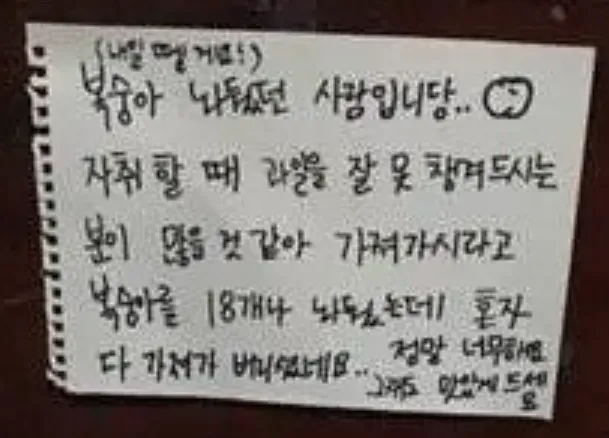 (내일 뗄게요!)
복숭아 놔뒀던 사람입니당..
자취 할 때 과일을 잘 못 챙겨드시는
분이 많을것 같아 가져가시라고
복숭아를 18개나 놔뒀는데 혼자
다 가져가 버리셨네요..
정말 너무하네요
그래도 맛있게 드세
요